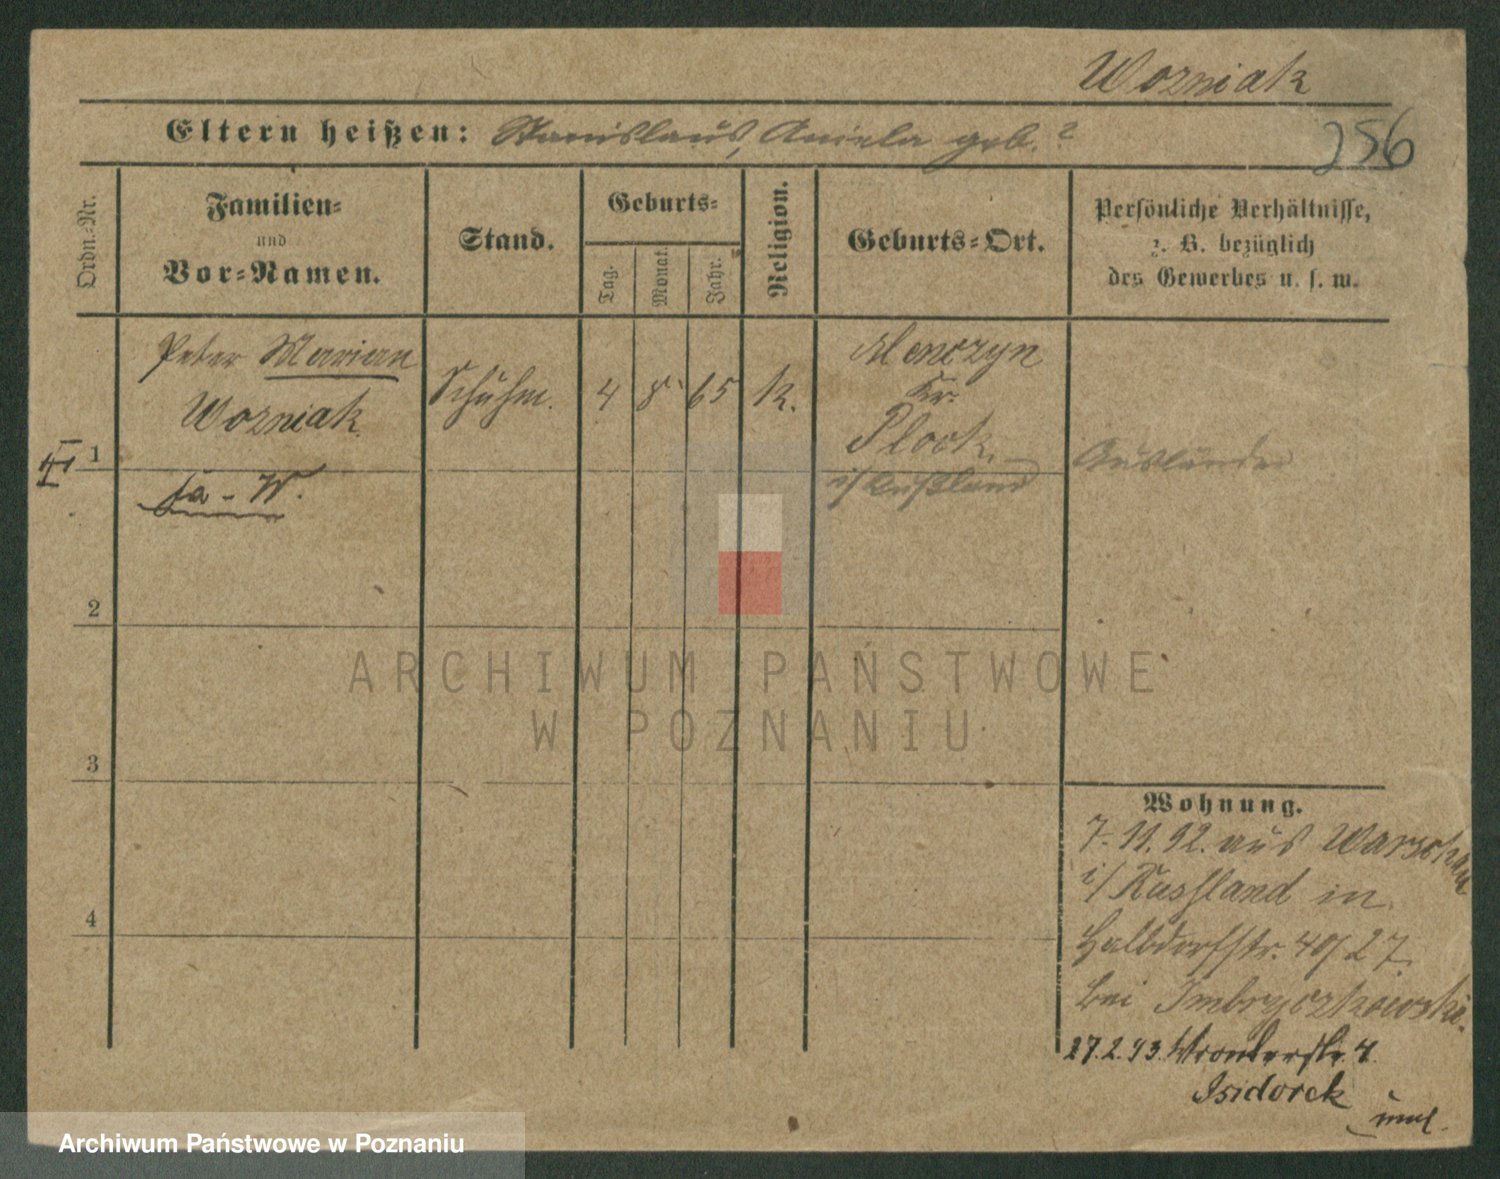 Wozniak
256
Eltern heißen: Stanislaus, Aniela geb. ?
Ordn.-Nr.
Familien-
und
Vor-Namen.
Stand.
Geburts-
Tag.
Monat.
Jahr.
Religion.
Geburts-Ort.
Persönliche Verhältnisse,
z. B. bezüglich
des Gewerbes u. s. w.
1
Peter Marian
Wozniak
Schuhm.
4 8 65
K.
Kr.
Plock.
i/ Rußland
Ausländer
2
3
4
Wohnung.
7. 11. 92. aus Warschau
i/ Russland in
Halbdorfstr. 40/27.
bei Imbryczkowski.
27.2.93. Wronkerstr. 4.
Isidorek
ARCHIWUM PAŃSTWOWE
W POZNANIU
Archiwum Państwowe w Poznaniu